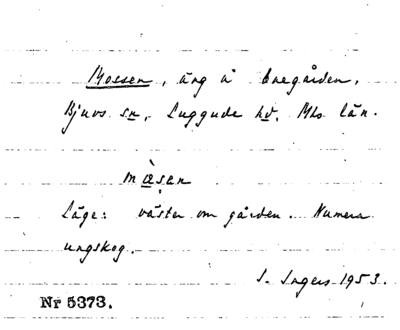 Mossen, äng å Enegården,
Bjuvs sn, Luggude hd. Mhs län.
mæ̀sen
Läge: väster om gården. Numera
ungskog.
I. Ingers 1953.
Nr 5373.